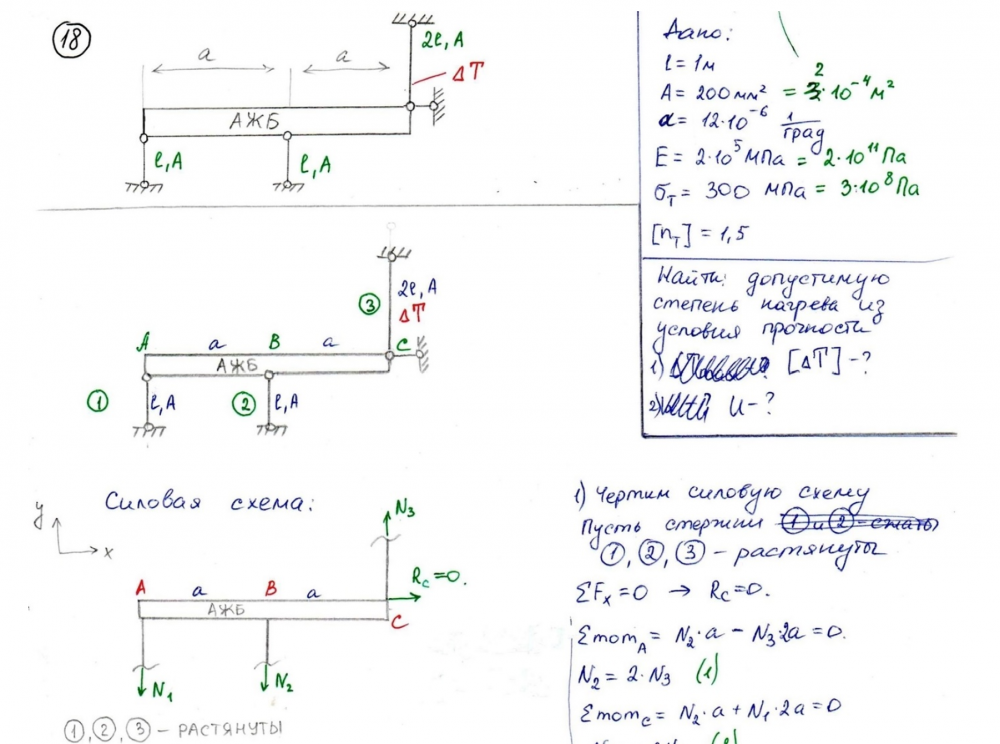 18
a
a
2ℓ, A
ΔT
АЖБ
ℓ, A
ℓ, A
Дано:
ℓ = 1м
A = 200 мм² = 2·10⁻⁴ м²
α = 12·10⁻⁶ 1/град
E = 2·10⁵ МПа = 2·10¹¹ Па
σт = 300 МПа = 3·10⁸ Па
[nт] = 1,5
Найти: допустимую
степень нагрева из
условия прочности
1) [ΔT] - ?
2) И - ?
3
2ℓ, A
ΔT
A
a
B
a
C
АЖБ
1
ℓ, A
2
ℓ, A
Силовая схема:
y
x
N₃
Rc=0.
A
a
B
a
АЖБ
C
N₁
N₂
1, 2, 3 - РАСТЯНУТЫ
1) Чертим силовую схему
Пусть стержни 1 и 2 - сжаты
1, 2, 3 - растянуты
ΣFx = 0 → Rc = 0.
Σmom_A = N₂·a − N₃·2a = 0.
N₂ = 2·N₃ (1)
Σmom_C = N₂·a + N₁·2a = 0